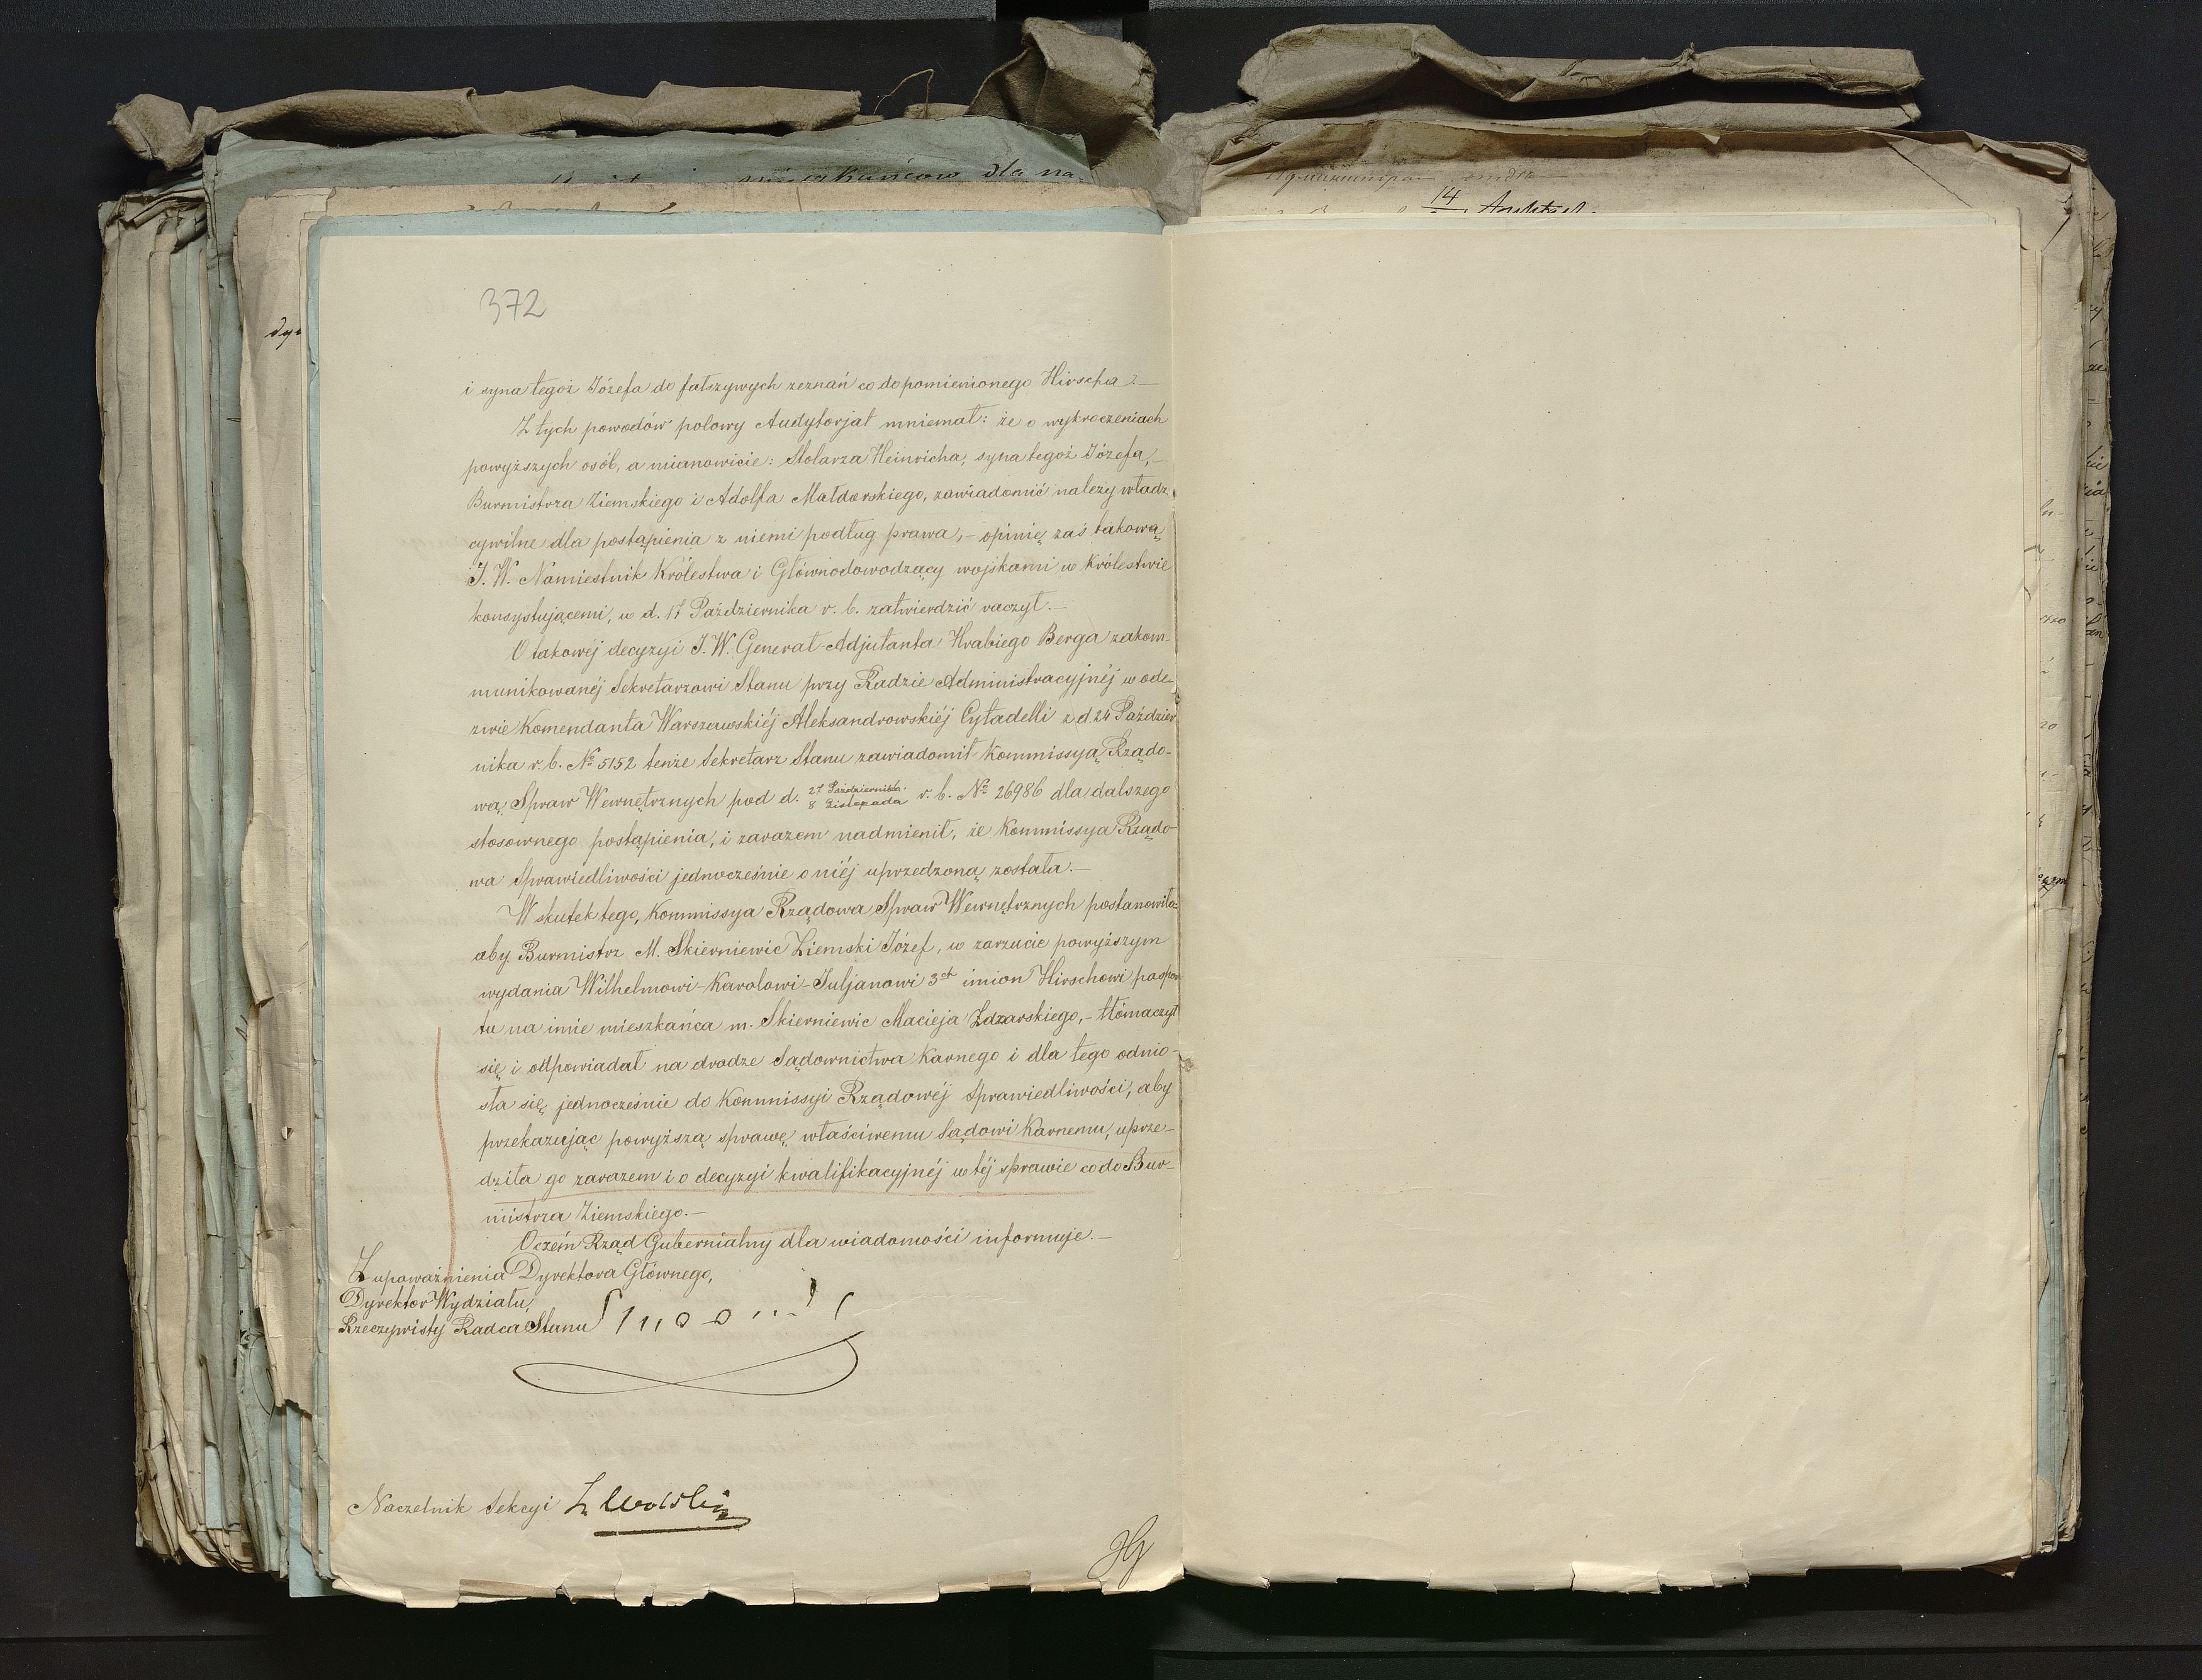 372
i syna tegoż Józefa do fałszywych zeznań co do pomienionego Hirscha.—
Z tych powodów polowy Audytorjat mniemał: że o wykroczeniach
powyższych osób, a mianowicie: Stolarza Heinricha, syna tegoż Józefa,—
Burmistrza Ziemskiego i Adolfa Małdorskiego, zawiadomić należy władz.
cywilne dla postąpienia z niemi podług prawa,— opinię zaś takową
J. W. Namiestnik Królestwa i Głównodowodzący wojskami w Królestwie
konsystującemi, w d. 17 Października r. b. zatwierdzić raczył.—
O takowéj decyzyi J. W. Generał-Adjutanta Hrabiego Berga zakom-
munikowanéj Sekretarzowi Stanu przy Radzie Administracyjnéj w ode-
zwie Komendanta Warszawskiéj Aleksandrowskiéj Cytadelli z d. 24 Paździer
nika r. b. № 5152 tenże Sekretarz Stanu zawiadomił Kommissyą Rządo-
wą Spraw Wewnętrznych pod d. 27 Października / 8 Listopada r. b. № 26986 dla dalszego
stosownego postąpienia, i zarazem nadmienił, że Kommissya Rządo-
wa Sprawiedliwości jednocześnie o niéj uprzedzoną została.—
W skutek tego, Kommissya Rządowa Spraw Wewnętrznych postanowiła:
aby Burmistrz M. Skierniewic Ziemski Józef, w zarzucie powyższym
wydania Wilhelmowi-Karolowi-Juljanowi 3ch imion Hirschowi paspor
tu na imie mieszkańca m. Skierniewic Macieja Zdzarskiego,— tłómaczył
się i odpowiadał na drodze Sądownictwa Karnego i dla tego odnio-
sła się jednocześnie do Kommissyi Rządowéj Sprawiedliwości, aby
przekazując powyższą sprawę właściwemu Sądowi Karnemu, uprze-
dziła go zarazem i o decyzyi kwalifikacyjnéj w téj sprawie co do Bur-
mistrza Ziemskiego.—
O czém Rząd Gubernialny dla wiadomości informuje.—
Z upoważnienia Dyrektora Głównego,
Dyrektor Wydziału,
Rzeczywisty Radca Stanu
Naczelnik Sekcyi